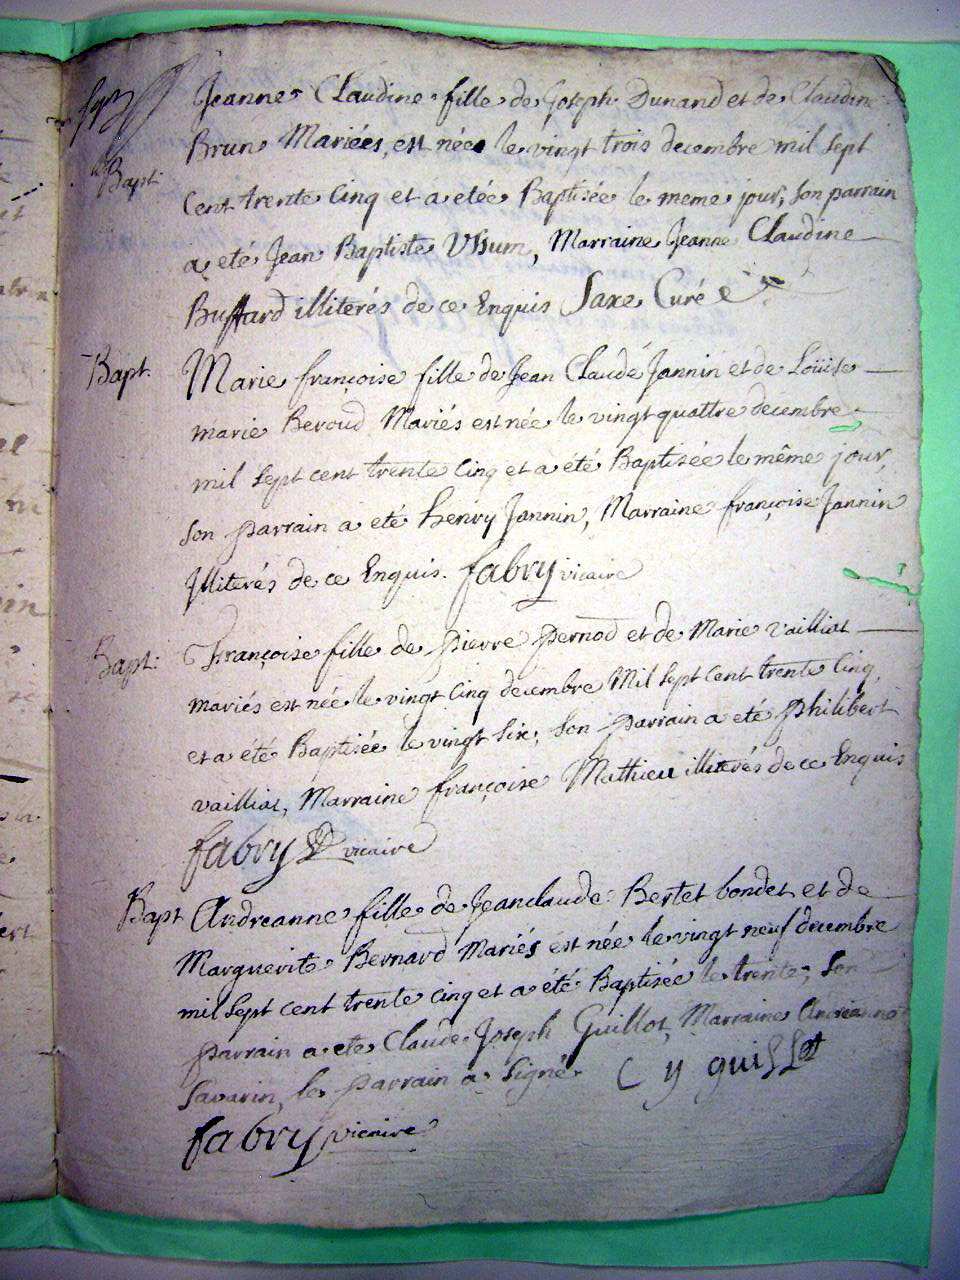 Bapt.
Jeanne Claudine fille de Joseph Dunand et de Claudine
Brun Mariées, est née le vingt trois decembre mil sept
Cent trente Cinq et a etée Baptisée le meme jour, son parrain
a eté Jean Baptiste Vssum, Marraine Jeanne Claudine
Buffard illiterés de ce Enquis Saxe Curé
Bapt.
Marie françoise fille de Jean Claude Jannin et de Loüise
marie Beroud Mariés est née le vingt quattre decembre
mil sept cent trente Cinq et a été Baptisée le même jour,
son parrain a eté henry Jannin, Marraine françoise Jannin
Illiterés de ce Enquis. fabry vicaire
Bapt:
Françoise fille de pierre pernod et de Marie vailliat
mariés est née le vingt Cinq decembre Mil sept cent trente Cinq,
et a été Baptisée le vingt six; son parrain a eté philibert
vailliat, Marraine françoise Mathieu illiterés de ce Enquis
fabry vicaire
Bapt
Andreanne fille de Jeanclaude Bertet bondet et de
Marguerite Bernard Mariés est née le vingt neuf decembre
mil sept cent trente cinq et a été Baptisée le trente; son
parrain a eté Claude Joseph Guillot, Marraine Andreanne
Savarin, le parrain a signé. C y guillot
fabry vicaire